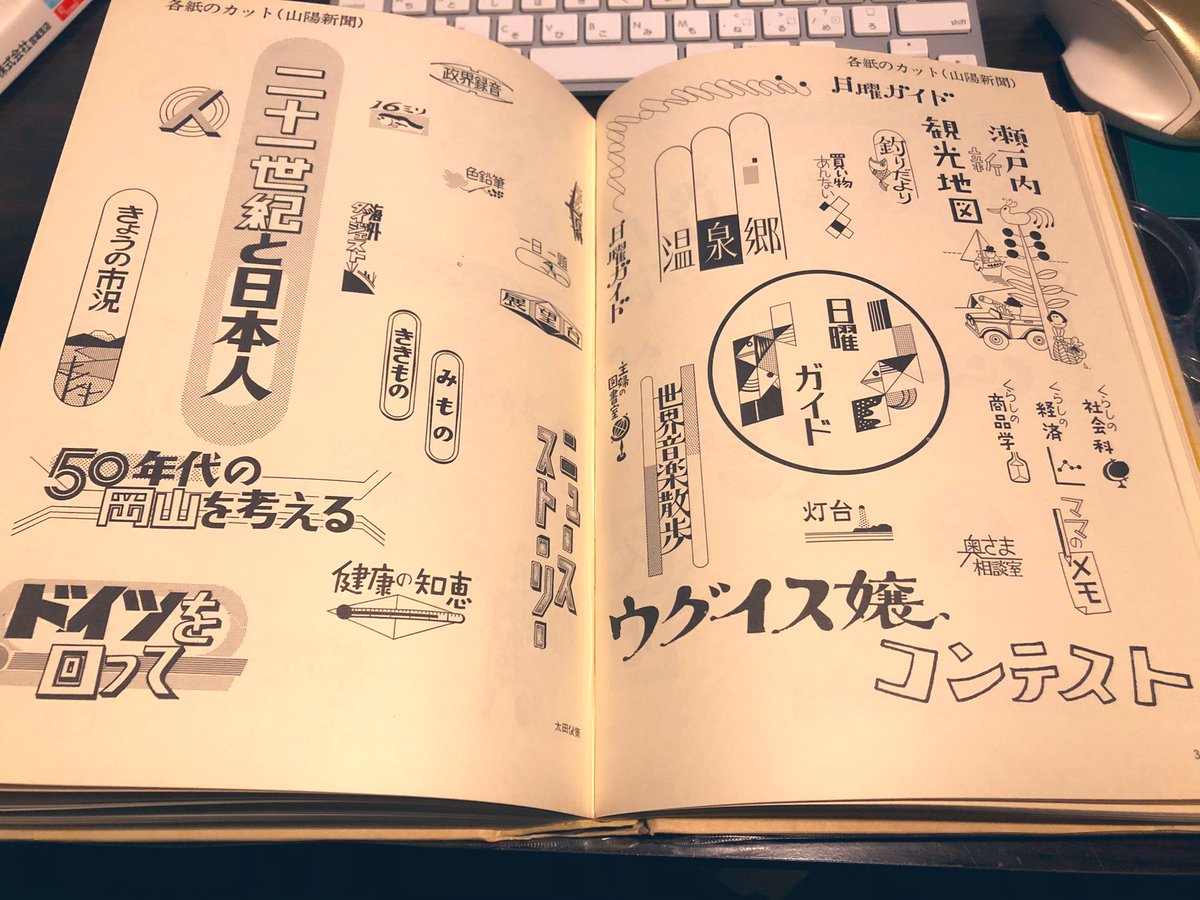 各紙のカット(山陽新聞)
二十一世紀と日本人
人
政界録音
16ミリ
色鉛筆
きょうの市況
海外
ダイジェスト
一日一題
展望台
ききもの
みもの
50年代の
岡山を考える
ニュース
ストーリー
健康の知恵
ドイツを
回って
各紙のカット(山陽新聞)
日曜ガイド
瀬戸内
新
観光地図
釣りだより
買い物
あんない
温泉郷
日曜ガイド
日曜
ガイド
主婦の
図書室
世界音楽散歩
くらしの
社会科
くらしの
経済
くらしの
商品学
灯台
奥さま
相談室
ママの
メモ
ウグイス嬢、
コンテスト
株式会社
shift